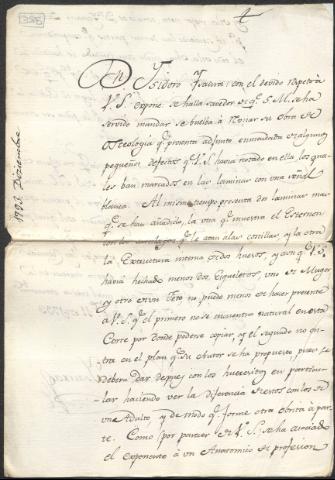 Dn. Isidoro Isaura: con el devido respeto à
V. S. expone: se halla sabedor de qe. S. M. se ha
servido mandar se buelba à revisar su obra de
Osteologia qe. presenta adjunta enmendada de algunos
pequeños defectos qe. V. S. havia notado en ella, los qua-
les ban marcados en las laminas con una señal
blanca. Al mismo tiempo presenta dos laminas mas
qe. se han añadido, la una qe. muestra el Esternon
con los qe. le atan alas costillas, y la otra
la Extructura intima de dos huesos, y aunqe. V. S.
havia hechado menos dos Esqueletos, uno de Muger
y otro de un Feto no puedo menos de hacer presente
a V. S. qe. el primero no se encuentra natural en esta
Corte por donde poderse copiar, y el segundo no en-
tra en el plan qe. su Autor se ha propuesto pues se
deberà dar depues con los huesecitos en particu-
lar haciendo ver la diferencia de estos con los de
un Adulto, y de modo qe. forme otra obrita à par-
te. Como por parecer de V. S. se ha asociado
el exponente à un Anatomico de profesion
1781 Diziembre